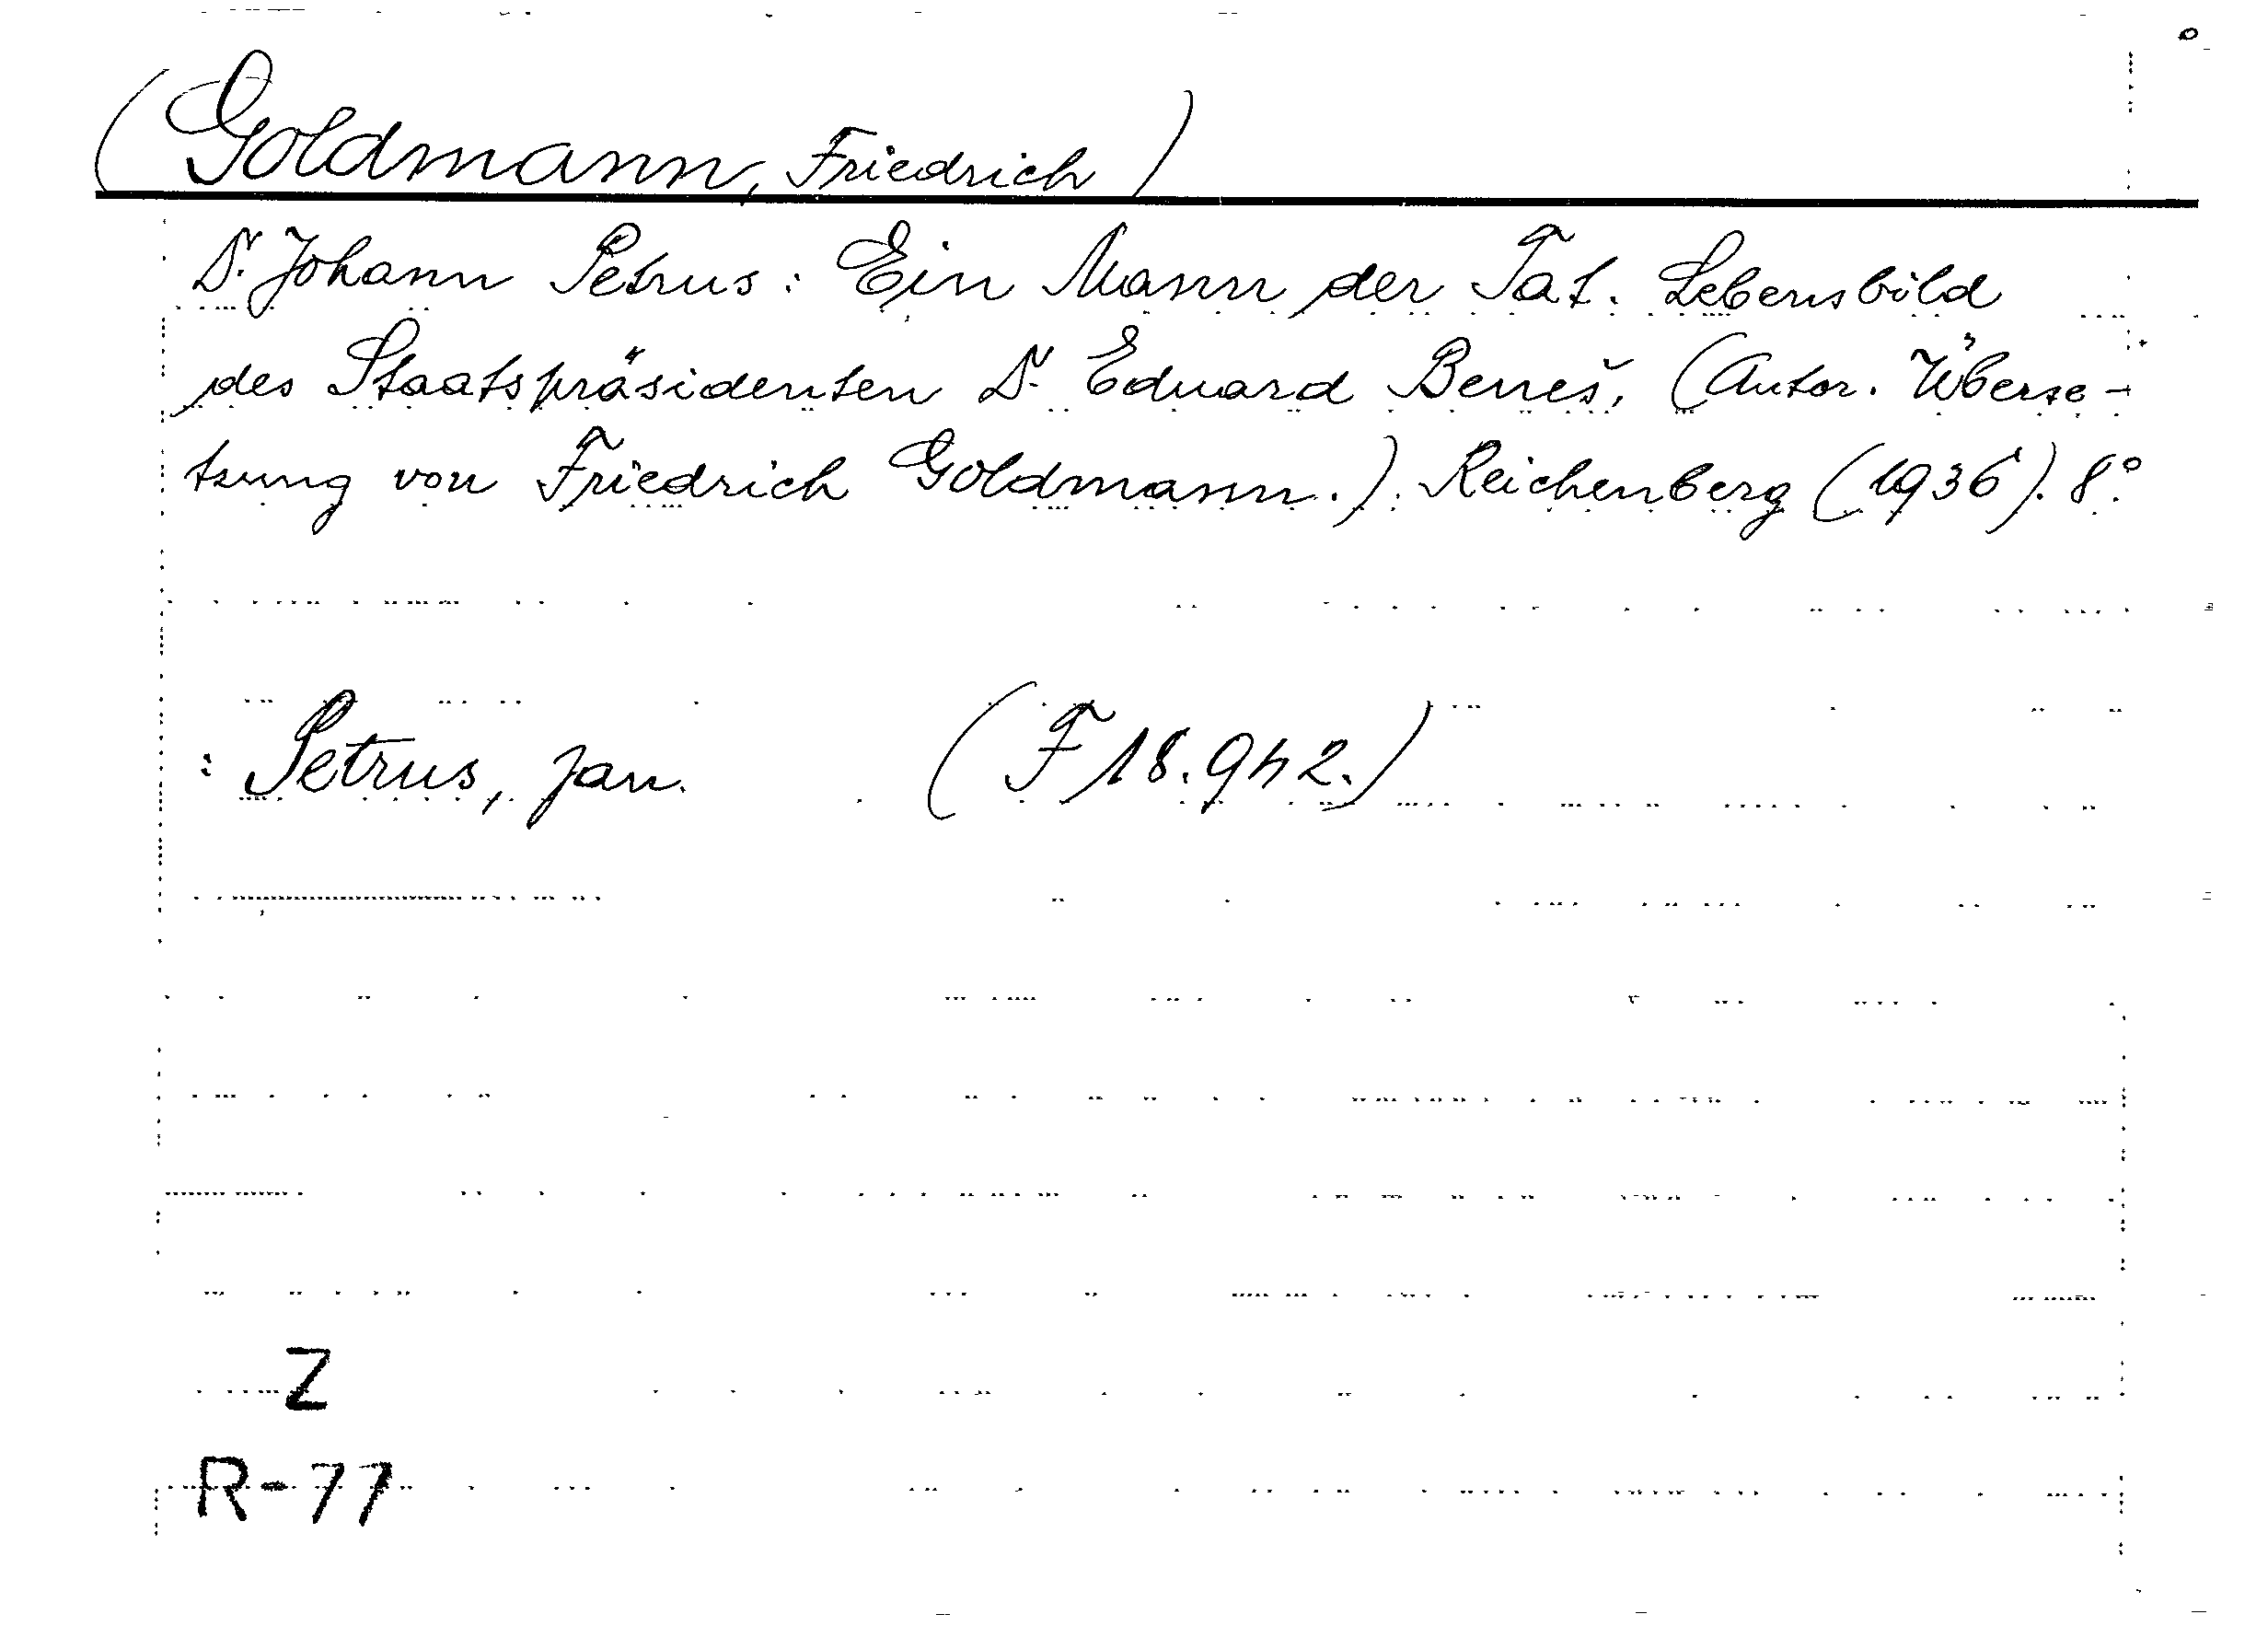 (Goldmann, Friedrich)
Dr. Johann Petrus: Ein Mann der Tat. Lebensbild
des Staatspräsidenten Dr. Eduard Beneš. (Autor. Überse-
tzung von Friedrich Goldmann.). Reichenberg (1936). 8°.
: Petrus, Jan. (F 18.942.)
Z
R-77